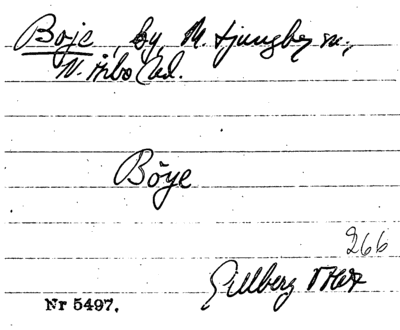 Boje, by, N. Ljungby sn,
N. Åsbo hd.
Böye
266
Gillberg
Nr 5497.